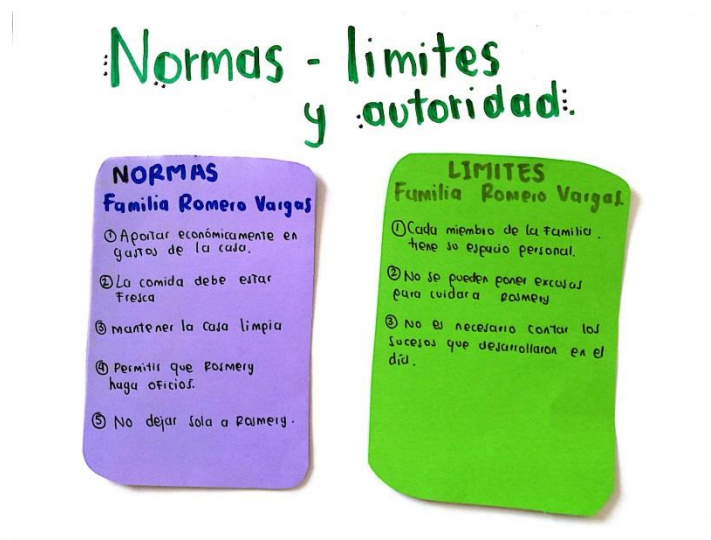 Normas - limites
y autoridad
NORMAS
Familia Romero Vargas
① Aportar económicamente en
gastos de la casa.
② La comida debe estar
Fresca
③ mantener la casa limpia
④ Permitir que Rosmery
haga oficios.
⑤ No dejar sola a Rosmery.
LIMITES
Familia Romero Vargas.
① Cada miembro de la familia
tiene su espacio personal.
② No se pueden poner excusas
para cuidar a Rosmery
③ No es necesario contar los
sucesos que desarrollaron en el
día.